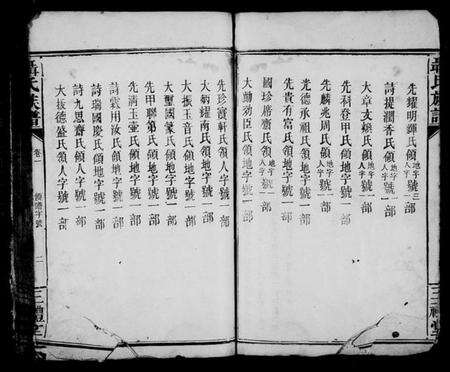 聶氏族譜
先耀明輝氏領人字地字號一三部
詩提潤香氏領人字地字號一部
大章支煥氏領地字號一部
先科登甲氏領地字號一部
先麟兆周氏領人字號一部
光德承祖氏領地字號一部
先貴有富氏領地字號一部
國珍席齋氏領人字地字號一部
大勳功臣氏領地字號一部
先珍寶軒氏領人字號一部
大炳耀南氏領地字號一部
大振玉音氏領地字號一部
大璽國篆氏領地字號一部
先甲聯第氏領地字號一部
先滴玉壺氏領地字號一部
詩雲用汝氏領地字號一部
詩瑞國慶氏領地字號一部
詩九思齋氏領人字號一部
大振德盛氏領人字號一部
聶氏族譜
卷
領譜字號
二
三禮堂